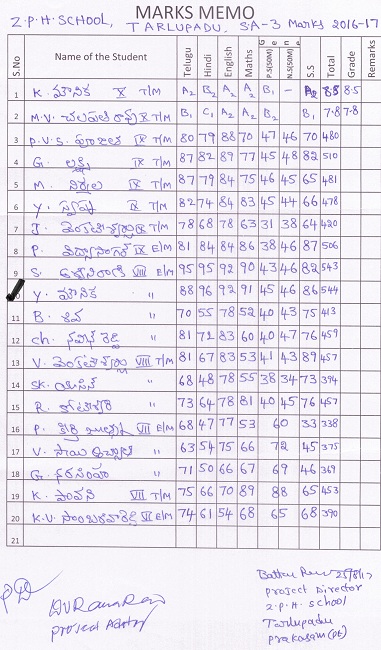 MARKS MEMO
Z.P.H. SCHOOL, TARLUPADU, SA-3 Marks 2016-17
S.No Name of the Student Telugu Hindi English Maths Gene P.S(50M) N.S(50M) S.S Total Grade Remarks
1 K. మౌనిక X T/M A2 B2 A2 A2 B1 - A2 8.8 8.5
2 M.V. X T/M B1 C1 A2 A2 B2 B1 7.8 7.8
3 P.V.S. IX T/M 80 79 88 70 47 46 70 480
4 G. లక్ష్మి IX T/M 87 82 89 77 45 48 82 510
5 M. నిర్మల IX T/M 87 79 84 75 46 45 65 481
6 Y. స్వప్న IX T/M 82 74 84 83 45 44 66 478
7 T. IX T/M 78 68 78 63 31 38 64 420
8 P. విద్యాసాగర్ IX E/M 81 84 84 86 38 46 87 506
9 S. VIII E/M 95 95 92 90 43 46 82 543
10 Y. మౌనిక " 88 96 92 91 45 46 86 544
11 B. శివ " 70 55 78 52 40 43 75 413
12 Ch. నవీన్ రెడ్డి " 81 72 83 60 40 47 76 459
13 V. VIII T/M 81 67 83 53 41 43 89 457
14 SK. యాసిన్ " 68 48 78 55 38 34 73 394
15 R. " 73 64 78 81 40 45 76 457
16 P. VII E/M 68 47 77 53 60 33 338
17 V. సాయి " 63 54 75 66 72 45 375
18 G. నరసింహ " 71 50 66 67 69 46 369
19 K. పావని VII T/M 75 66 70 89 88 65 453
20 K.V. VII E/M 74 61 54 68 65 68 390
21
25/8/17
Project Director
Z.P.H. School
Tarlupadu
Prakasam (Dt)